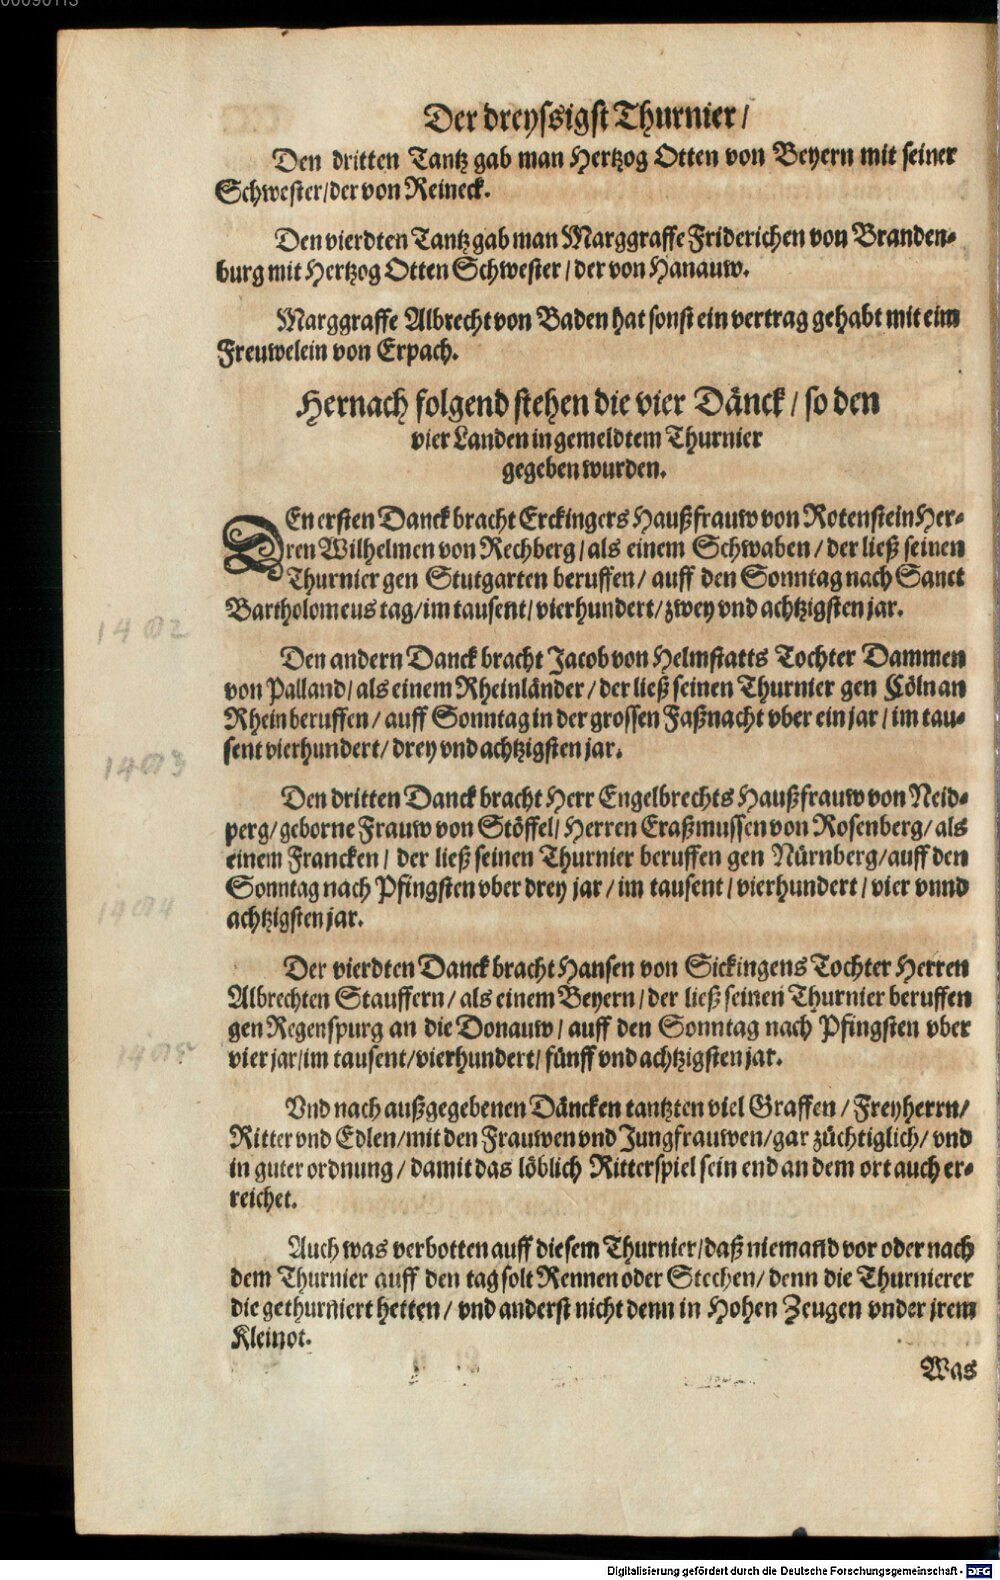 00090113
Der dreyssigst Thurnier/
Den dritten Tantz gab man Hertzog Otten von Beyern mit seiner
Schwester/der von Reineck.
Den vierdten Tantz gab man Marggraffe Friderichen von Branden-
burg mit Hertzog Otten Schwester/ der von Hanauw.
Marggraffe Albrecht von Baden hat sonst ein vertrag gehabt mit eim
Freuwelein von Erpach.
Hernach folgend stehen die vier Dänck/ so den
vier Landen in gemeldtem Thurnier
gegeben wurden.
DEn ersten Danck bracht Erckingers Haußfrauw von Rotenstein Her-
ren Wilhelmen von Rechberg/ als einem Schwaben/ der ließ seinen
Thurnier gen Stutgarten beruffen/ auff den Sonntag nach Sanct
Bartholomeus tag/im tausent/ vierhundert/ zwey vnd achtzigsten jar.
1482
Den andern Danck bracht Jacob von Helmstatts Tochter Dammen
von Palland/ als einem Rheinländer/ der ließ seinen Thurnier gen Cöln an
Rhein beruffen/ auff Sonntag in der grossen Faßnacht vber ein jar/ im tau-
sent vierhundert/ drey vnd achtzigsten jar.
1483
Den dritten Danck bracht Herr Engelbrechts Haußfrauw von Neid-
perg/ geborne Frauw von Stöffel/ Herren Eraßmussen von Rosenberg/ als
einem Francken/ der ließ seinen Thurnier beruffen gen Nürnberg/auff den
Sonntag nach Pfingsten vber drey jar/ im tausent/ vierhundert/ vier vnnd
achtzigsten jar.
1484
Der vierdten Danck bracht Hansen von Sickingens Tochter Herren
Albrechten Stauffern/ als einem Beyern/ der ließ seinen Thurnier beruffen
gen Regenspurg an die Donauw/ auff den Sonntag nach Pfingsten vber
vier jar/im tausent/vierhundert/ fünff vnd achtzigsten jar.
1485
Vnd nach außgegebenen Däncken tantzten viel Graffen/ Freyherrn/
Ritter vnd Edlen/mit den Frauwen vnd Jungfrauwen/gar züchtiglich/ vnd
in guter ordnung/ damit das löblich Ritterspiel sein end an dem ort auch er-
reichet.
Auch was verbotten auff diesem Thurnier/daß niemand vor oder nach
dem Thurnier auff den tag solt Rennen oder Stechen/ denn die Thurnierer
die gethurniert hetten/ vnd anderst nicht denn in Hohen Zeugen vnder jrem
Kleinot.
Was
Digitalisierung gefördert durch die Deutsche Forschungsgemeinschaft - DFG